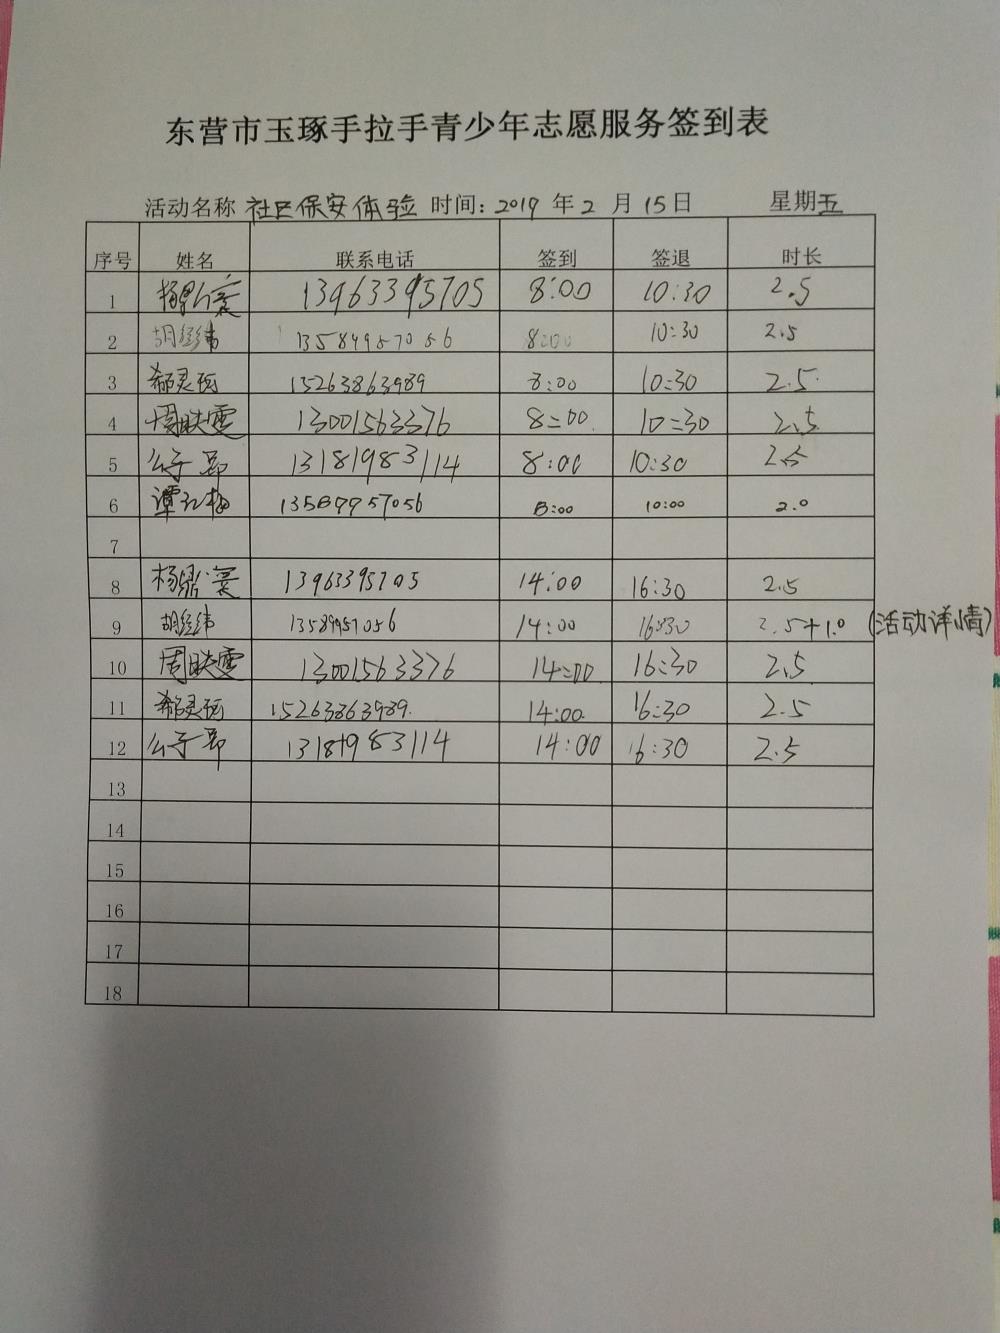 东营市玉琢手拉手青少年志愿服务签到表
活动名称 社区保安体验 时间: 2019 年 2 月 15 日 星期五
序号 姓名 联系电话 签到 签退 时长
1 13963395705 8:00 10:30 2.5
2 胡经纬 13589957056 8:00 10:30 2.5
3 郝灵钰 15263863989 8:00 10:30 2.5
4 周映雯 13001563376 8:00 10:30 2.5
5 公子昂 13181983114 8:00 10:30 2.5
6 谭红梅 13589957056 8:00 10:00 2.0
7
8 杨鼎 13963395705 14:00 16:30 2.5
9 胡经纬 13589957056 14:00 16:30 2.5+1.0 (活动详情)
10 周映雯 13001563376 14:00 16:30 2.5
11 郝灵钰 15263863989. 14:00 16:30 2.5
12 公子昂 13181983114 14:00 16:30 2.5
13
14
15
16
17
18